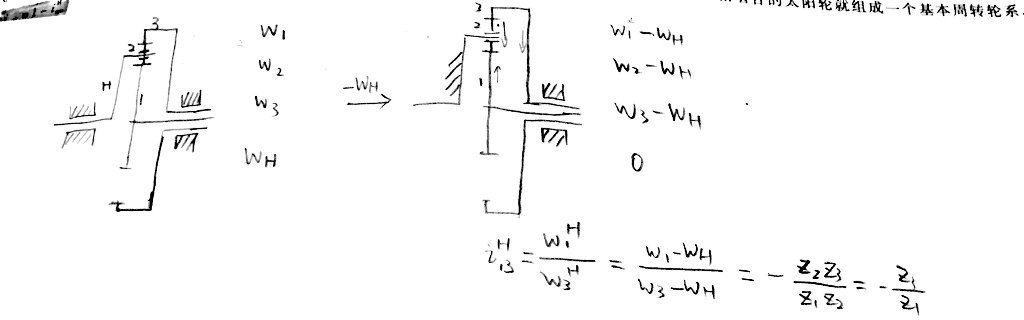 的太阳轮就组成一个基本周转轮系
3
2
H
1
W1
W2
W3
WH
-WH
3
2
1
W1-WH
W2-WH
W3-WH
0
i13^H = W1^H / W3^H = (W1-WH) / (W3-WH) = - Z2Z3 / Z1Z2 = - Z3 / Z1